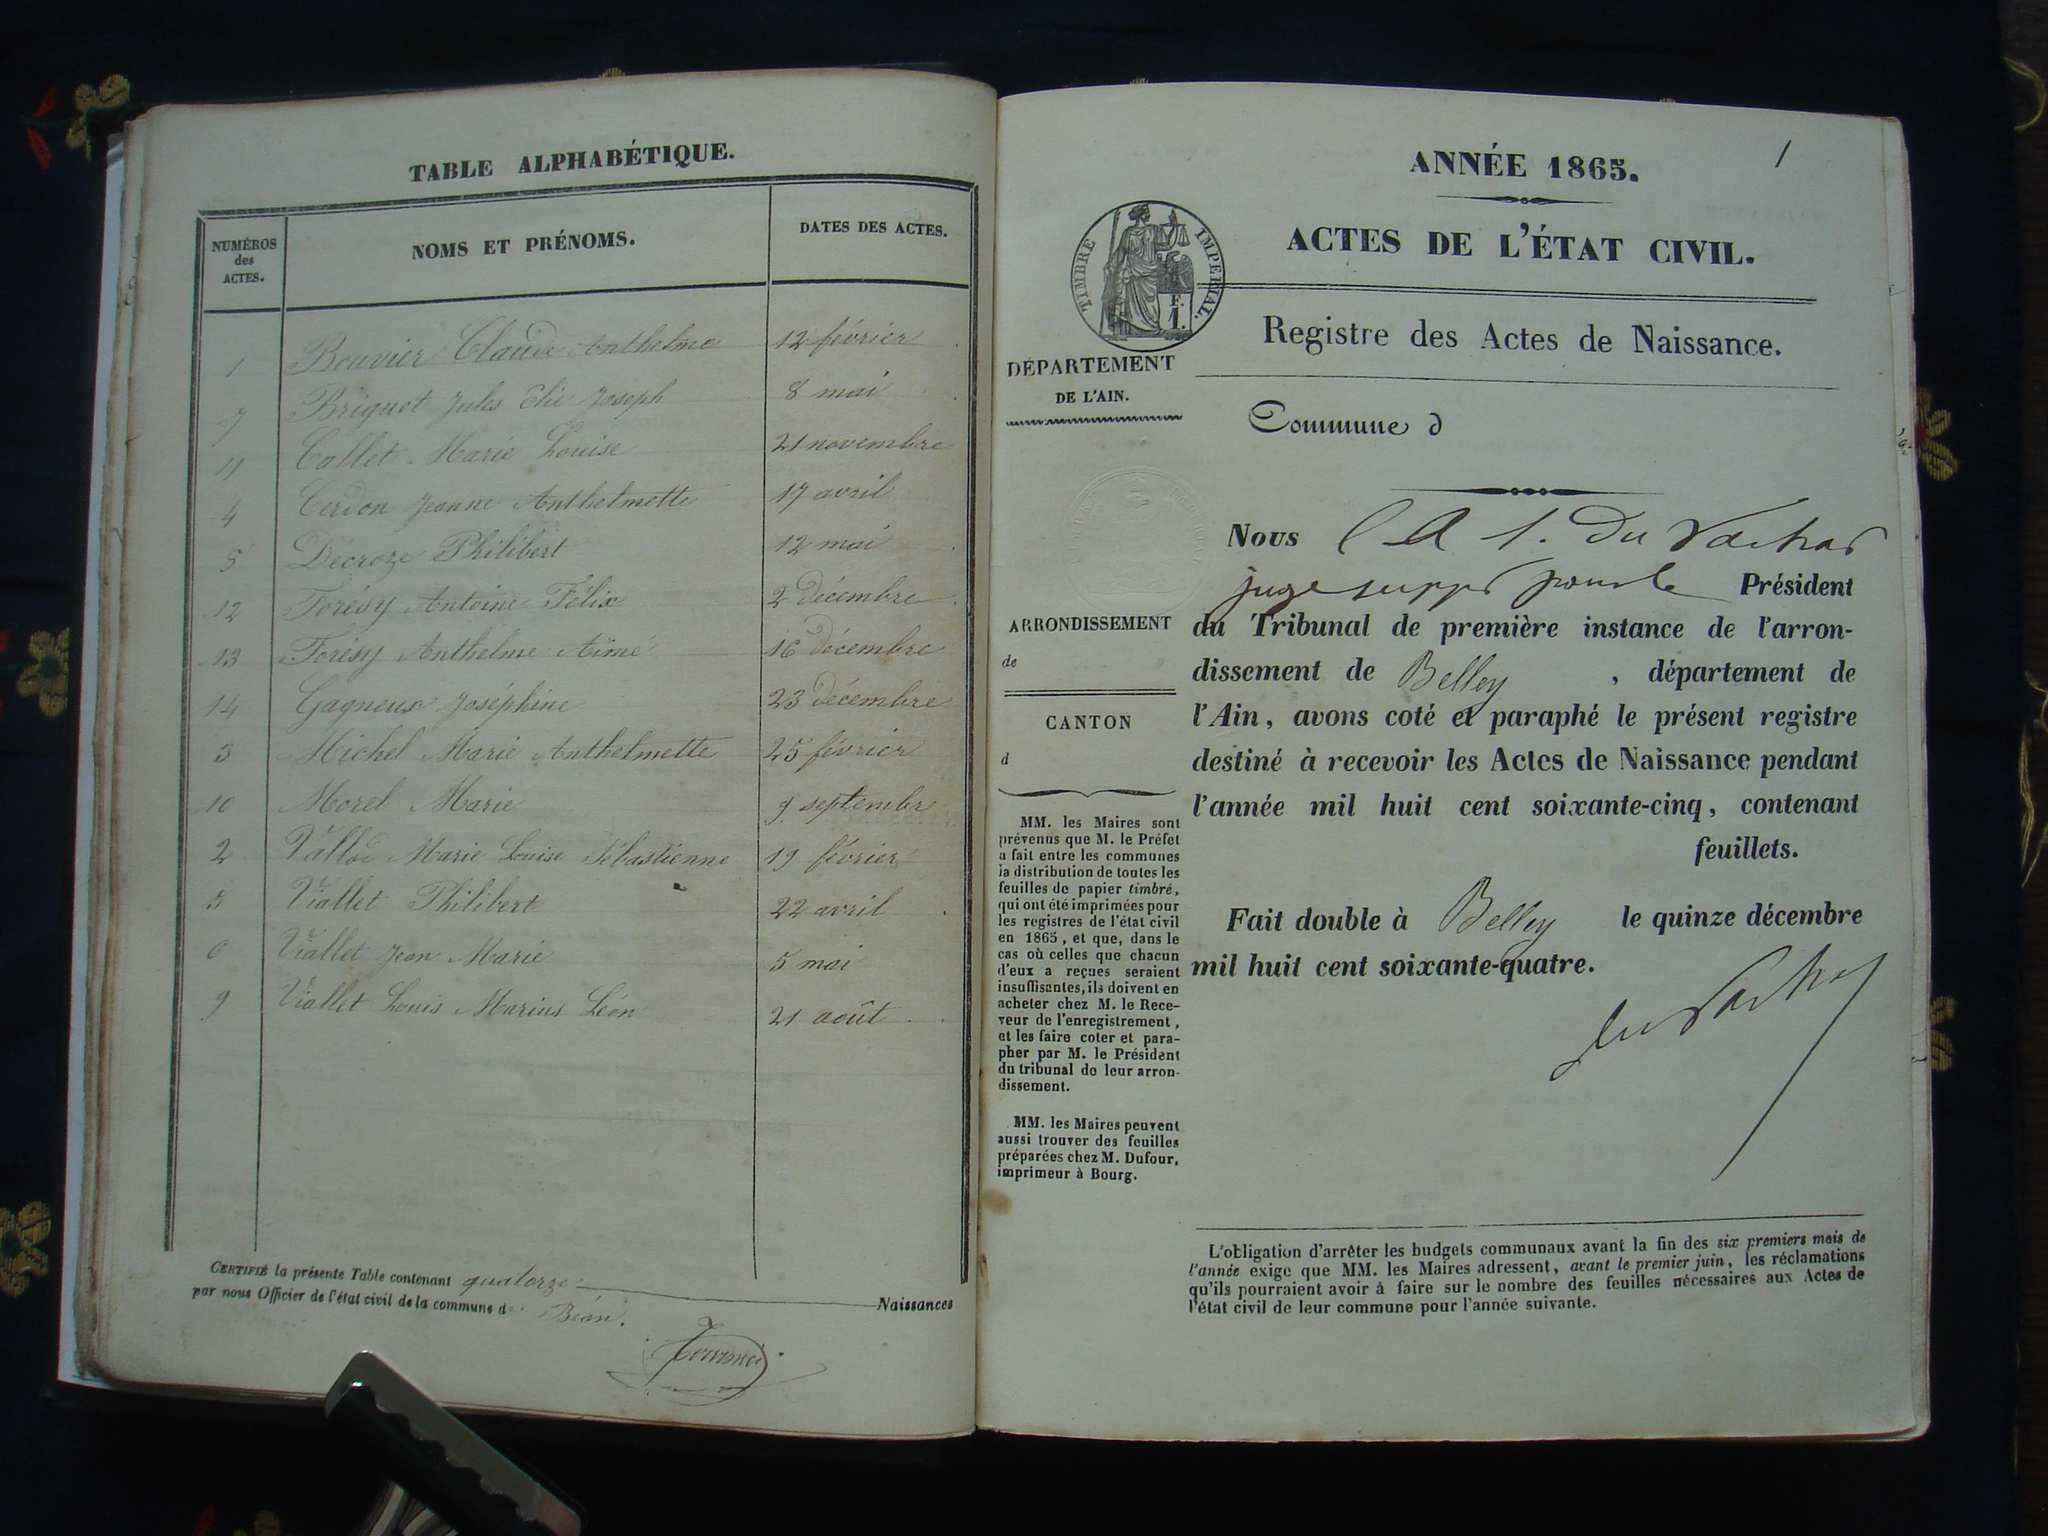 TABLE ALPHABÉTIQUE.
NUMÉROS des ACTES.
NOMS ET PRÉNOMS.
DATES DES ACTES.
1 Bouvier Claude Anthelme 12 février
7 Briguet Jules Élie Joseph 8 mai
11 Callet Marie Louise 21 novembre
4 Cerdon Jeanne Anthelmette 17 avril
5 Décroze Philibert 12 mai
12 Forésy Antoine Félix 2 décembre
13 Forésy Anthelme Aimé 16 décembre
14 Gagneux Joséphine 23 décembre
3 Michel Marie Anthelmette 25 février
10 Morel Marie 9 septembre
2 Vallod Marie Louise Sébastienne 19 février
5 Viallet Philibert 22 avril
6 Viallet Jean Marie 5 mai
9 Viallet Louis Marius Léon 21 août
CERTIFIÉ la présente Table contenant quatorze Naissances
par nous Officier de l'état civil de la commune de Béon.
1
ANNÉE 1865.
ACTES DE L'ÉTAT CIVIL.
TIMBRE IMPÉRIAL.
F.
1.
Registre des Actes de Naissance.
DÉPARTEMENT
DE L'AIN.
Commune d
ARRONDISSEMENT
de
CANTON
d
MM. les Maires sont
prévenus que M. le Préfet
a fait entre les communes
la distribution de toutes les
feuilles de papier timbré,
qui ont été imprimées pour
les registres de l'état civil
en 1865, et que, dans le
cas où celles que chacun
d'eux a reçues seraient
insuffisantes, ils doivent en
acheter chez M. le Rece-
veur de l'enregistrement,
et les faire coter et para-
pher par M. le Président
du tribunal de leur arron-
dissement.
MM. les Maires peuvent
aussi trouver des feuilles
préparées chez M. Dufour,
imprimeur à Bourg.
Nous
juge supp pour le Président
du Tribunal de première instance de l'arron-
dissement de Belley, département de
l'Ain, avons coté et paraphé le présent registre
destiné à recevoir les Actes de Naissance pendant
l'année mil huit cent soixante-cinq, contenant
feuillets.
Fait double à Belley le quinze décembre
mil huit cent soixante-quatre.
L'obligation d'arrêter les budgets communaux avant la fin des six premiers mois de
l'année exige que MM. les Maires adressent, avant le premier juin, les réclamations
qu'ils pourraient avoir à faire sur le nombre des feuilles nécessaires aux Actes de
l'état civil de leur commune pour l'année suivante.